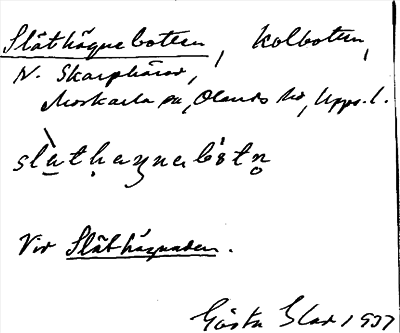 Slåthägnebotten, Kolbotten,
N. Skarphärad,
Morkarla sn, Olands hd, Upps. l.
slàt.hægnabòtn̥
Vid Slåthägnaden.
Gösta 1937